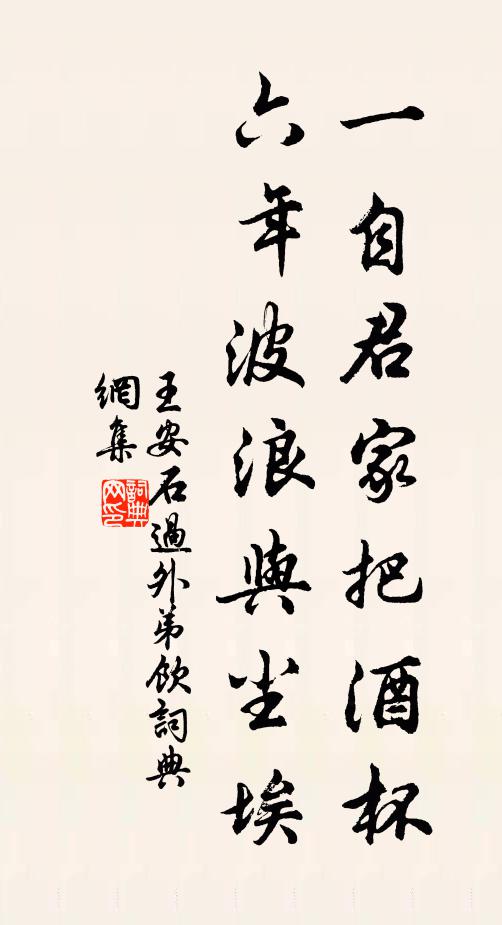 一自君家把酒杯
六年波浪與尘埃
王安石過外弟飲詞典
網集
詞典
网印